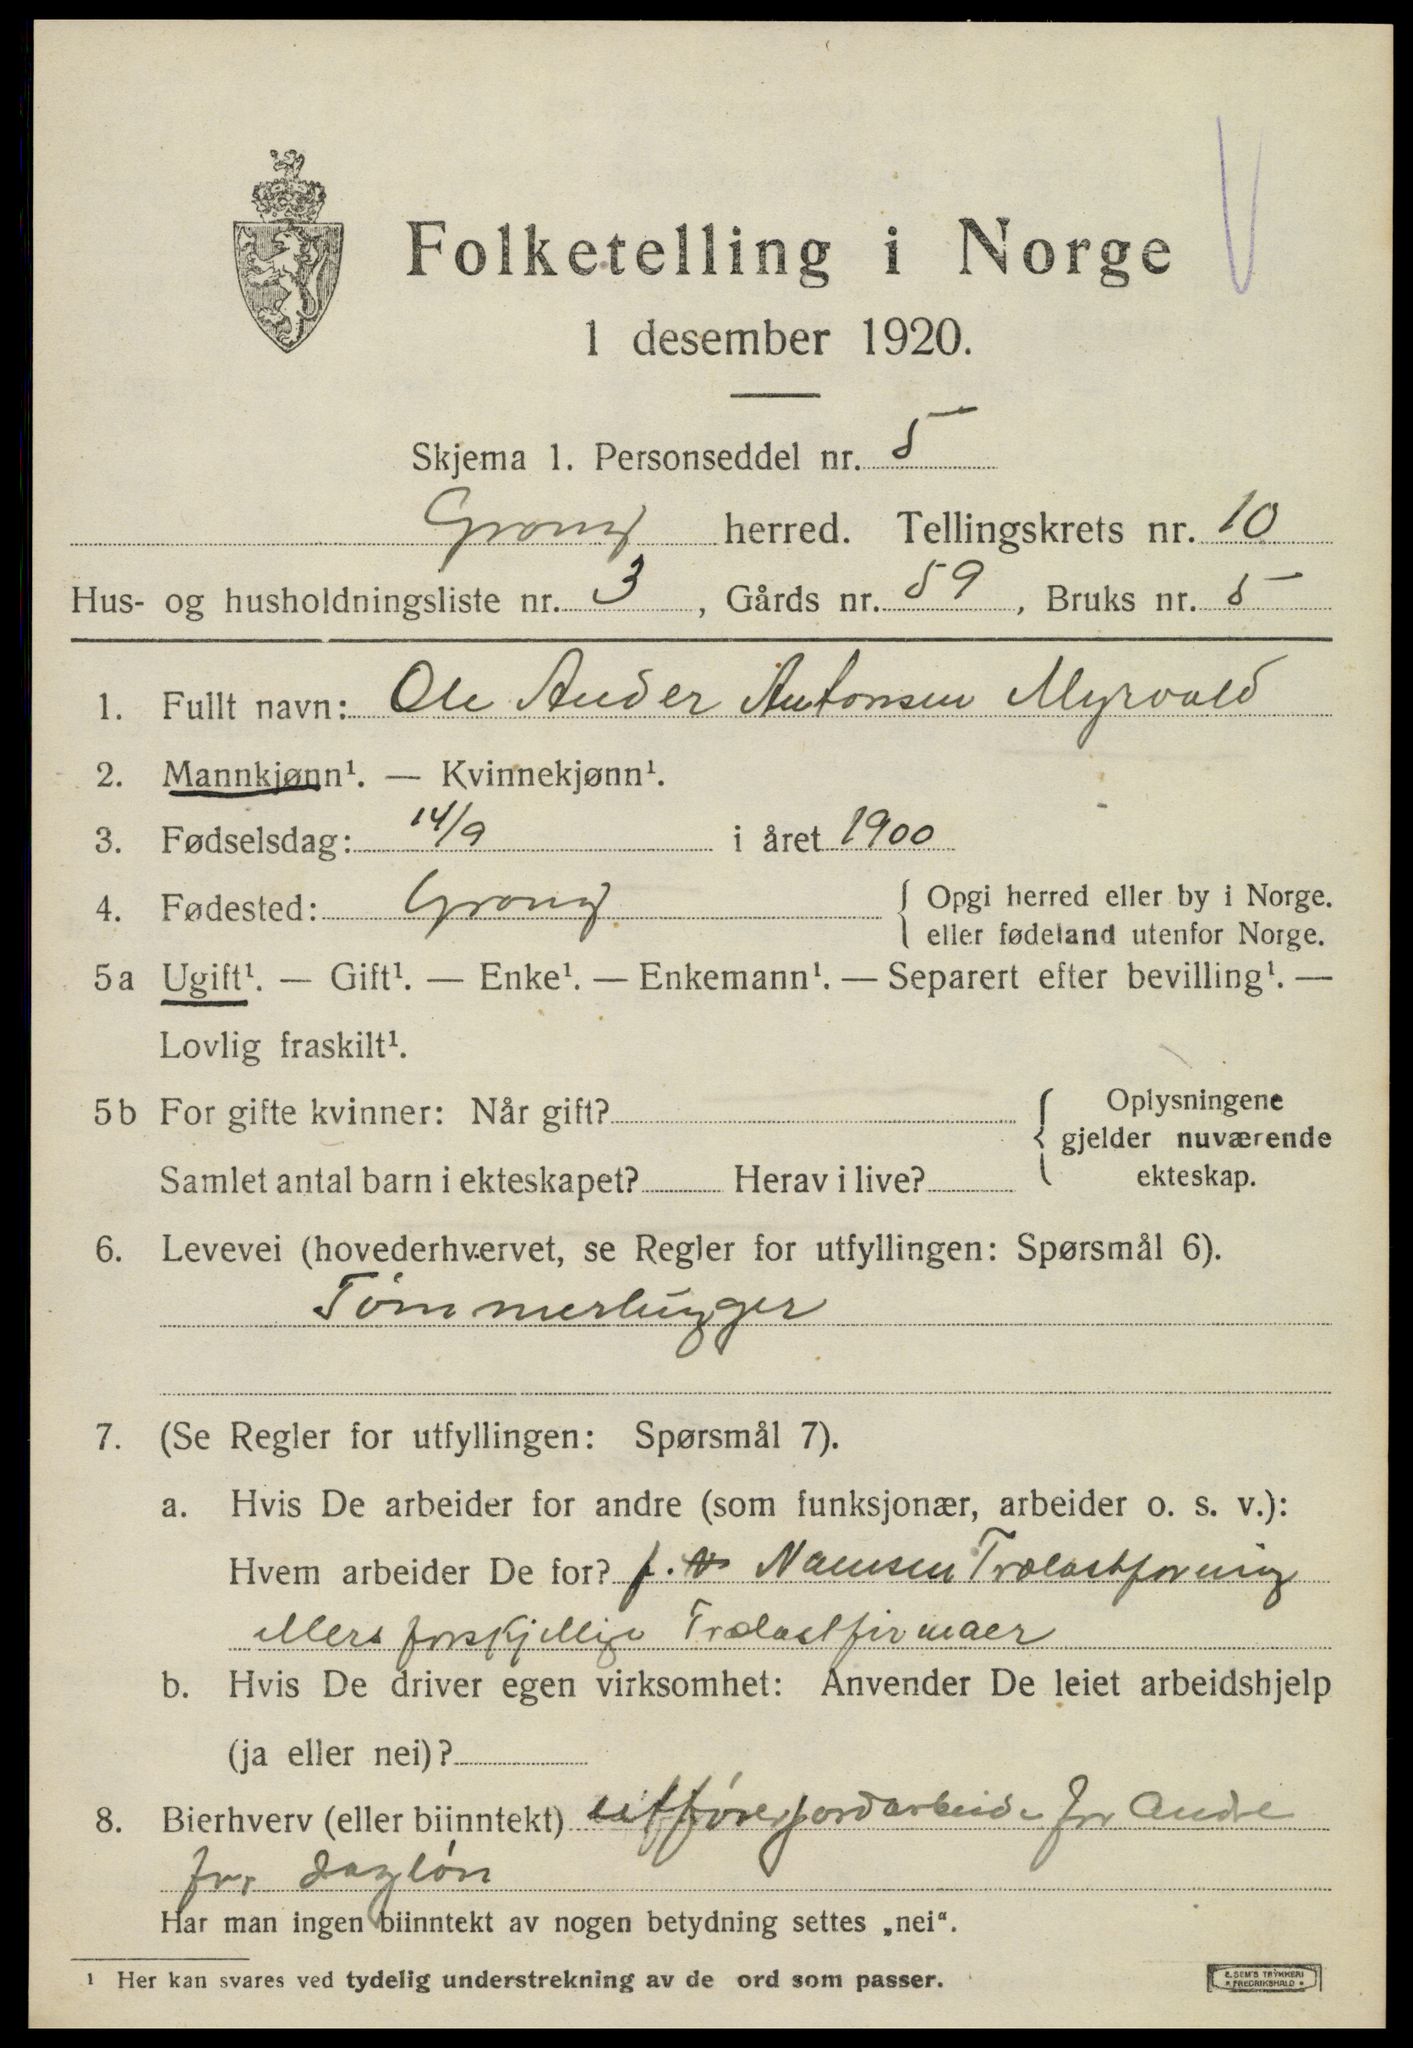 Folketelling i Norge
1 desember 1920.
Skjema 1. Personseddel nr. 5
Grong herred. Tellingskrets nr. 10
Hus- og husholdningsliste nr. 3, Gårds nr. 59, Bruks nr. 5
1. Fullt navn: Ole Ander Antonsen Myrvold
2. Mannkjønn¹. — Kvinnekjønn¹.
3. Fødselsdag: 14/9 i året 1900
4. Fødested: Grong { Opgi herred eller by i Norge.
eller fødeland utenfor Norge.
5a Ugift¹. — Gift¹. — Enke¹. — Enkemann¹. — Separert efter bevilling¹. —
Lovlig fraskilt¹.
5b For gifte kvinner: Når gift? { Oplysningene
gjelder nuværende
Samlet antal barn i ekteskapet? Herav i live? ekteskap.
6. Levevei (hovederhvervet, se Regler for utfyllingen: Spørsmål 6).
Tømmerhugger
7. (Se Regler for utfyllingen: Spørsmål 7).
a. Hvis De arbeider for andre (som funksjonær, arbeider o. s. v.):
Hvem arbeider De for? f. Namsen Trælastforning
ellers forskjellige Trælastfirmaer
b. Hvis De driver egen virksomhet: Anvender De leiet arbeidshjelp
(ja eller nei)?
8. Bierhverv (eller biinntekt) utfører jordarbeide for Andre
for dagløn
Har man ingen biinntekt av nogen betydning settes „nei“.
¹ Her kan svares ved tydelig understrekning av de ord som passer.
E. SEM'S TRYKKERI
FREDRIKSHALD